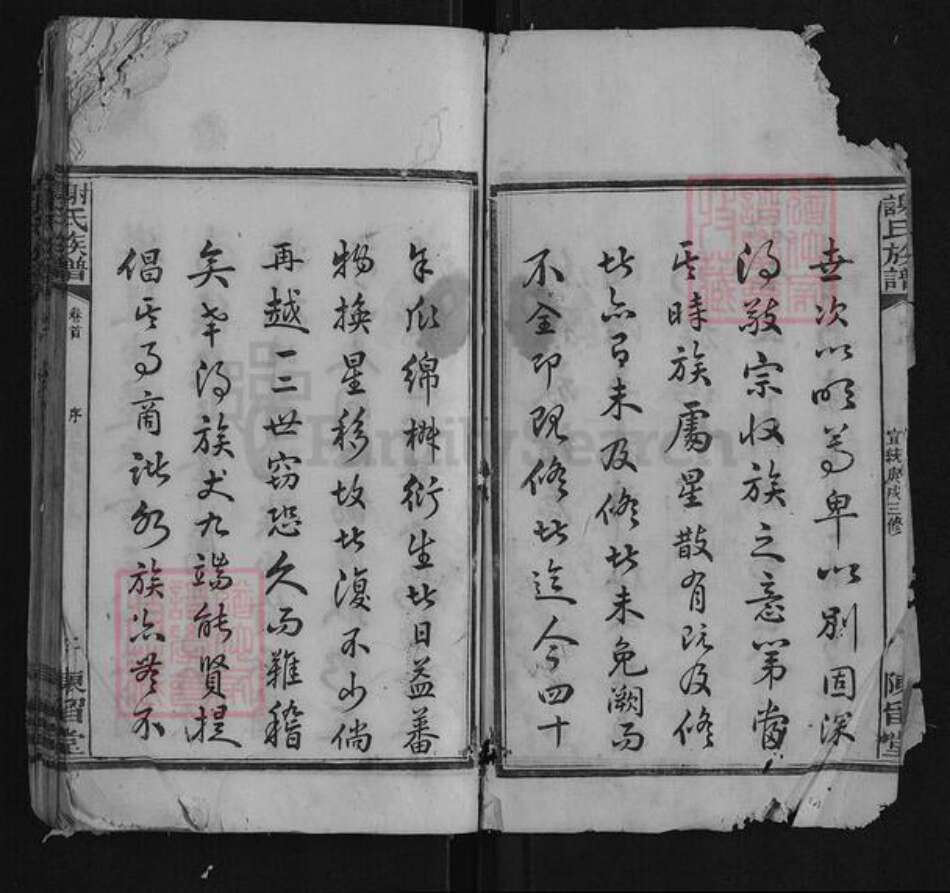 謝氏族譜
宣統庚戌三修
陳留堂
世次以明尊卑以別固深
得敬宗收族之意第當
其時族處星散有既及修
者亦有未及修者未免闕而
不全即既修者迄今四十
年瓜綿椒衍生者日益蕃
物換星移故者復不少倘
再越一二世竊恐久而難稽
矣幸得族丈九端能賢提
倡其事商諸於族亦莫不
謝氏族譜
卷首
序
陳留堂
FamilySearch